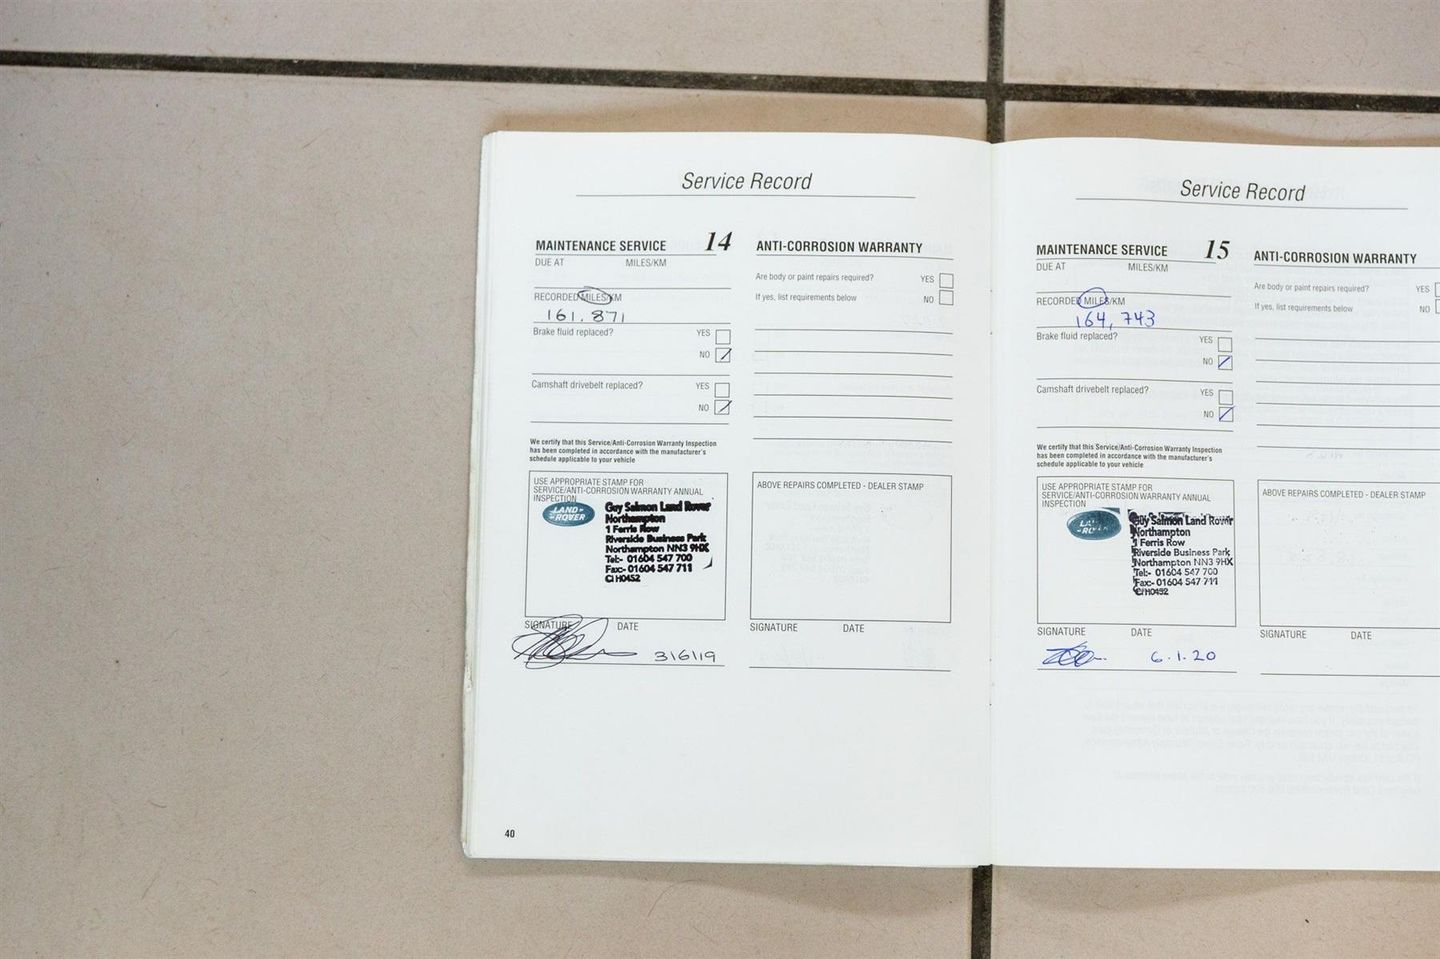 Service Record
MAINTENANCE SERVICE 14
DUE AT MILES/KM
RECORDED MILES/KM
161,871
Brake fluid replaced? YES
NO
Camshaft drivebelt replaced? YES
NO
We certify that this Service/Anti-Corrosion Warranty Inspection
has been completed in accordance with the manufacturer's
schedule applicable to your vehicle
USE APPROPRIATE STAMP FOR
SERVICE/ANTI-CORROSION WARRANTY ANNUAL
INSPECTION
LAND-
-ROVER
Guy Salmon Land Rover
Northampton
1 Ferris Row
Riverside Business Park
Northampton NN3 9HX
Tel:- 01604 547 700
Fax:- 01604 547 711
CI H0452
SIGNATURE DATE
3/6/19
ANTI-CORROSION WARRANTY
Are body or paint repairs required? YES
If yes, list requirements below NO
ABOVE REPAIRS COMPLETED - DEALER STAMP
SIGNATURE DATE
40
Service Record
MAINTENANCE SERVICE 15
DUE AT MILES/KM
RECORDED MILES/KM
164,743
Brake fluid replaced? YES
NO
Camshaft drivebelt replaced? YES
NO
We certify that this Service/Anti-Corrosion Warranty Inspection
has been completed in accordance with the manufacturer's
schedule applicable to your vehicle
USE APPROPRIATE STAMP FOR
SERVICE/ANTI-CORROSION WARRANTY ANNUAL
INSPECTION
Guy Salmon Land Rover
Northampton
1 Ferris Row
Riverside Business Park
Northampton NN3 9HX
Tel:- 01604 547 700
Fax:- 01604 547 711
CI H0452
SIGNATURE DATE
6.1.20
ANTI-CORROSION WARRANTY
Are body or paint repairs required? YES
If yes, list requirements below NO
ABOVE REPAIRS COMPLETED - DEALER STAMP
SIGNATURE DATE